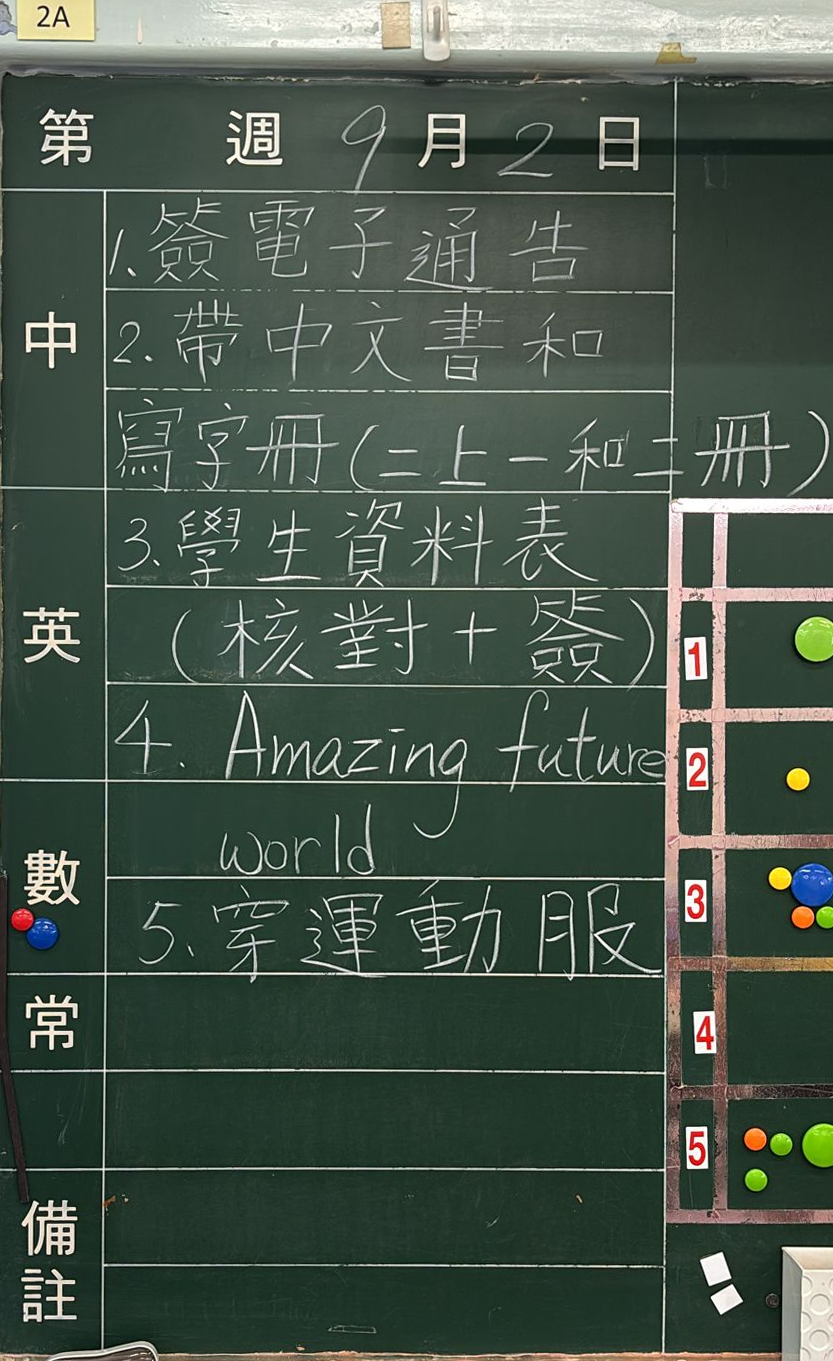 2A
第 週 9 月 2 日
中
1. 簽電子通告
2. 帶中文書和
寫字冊(二上一和二冊)
英
3. 學生資料表
(核對+簽)
4. Amazing future
world
數
5. 穿運動服
常
備註
1
2
3
4
5